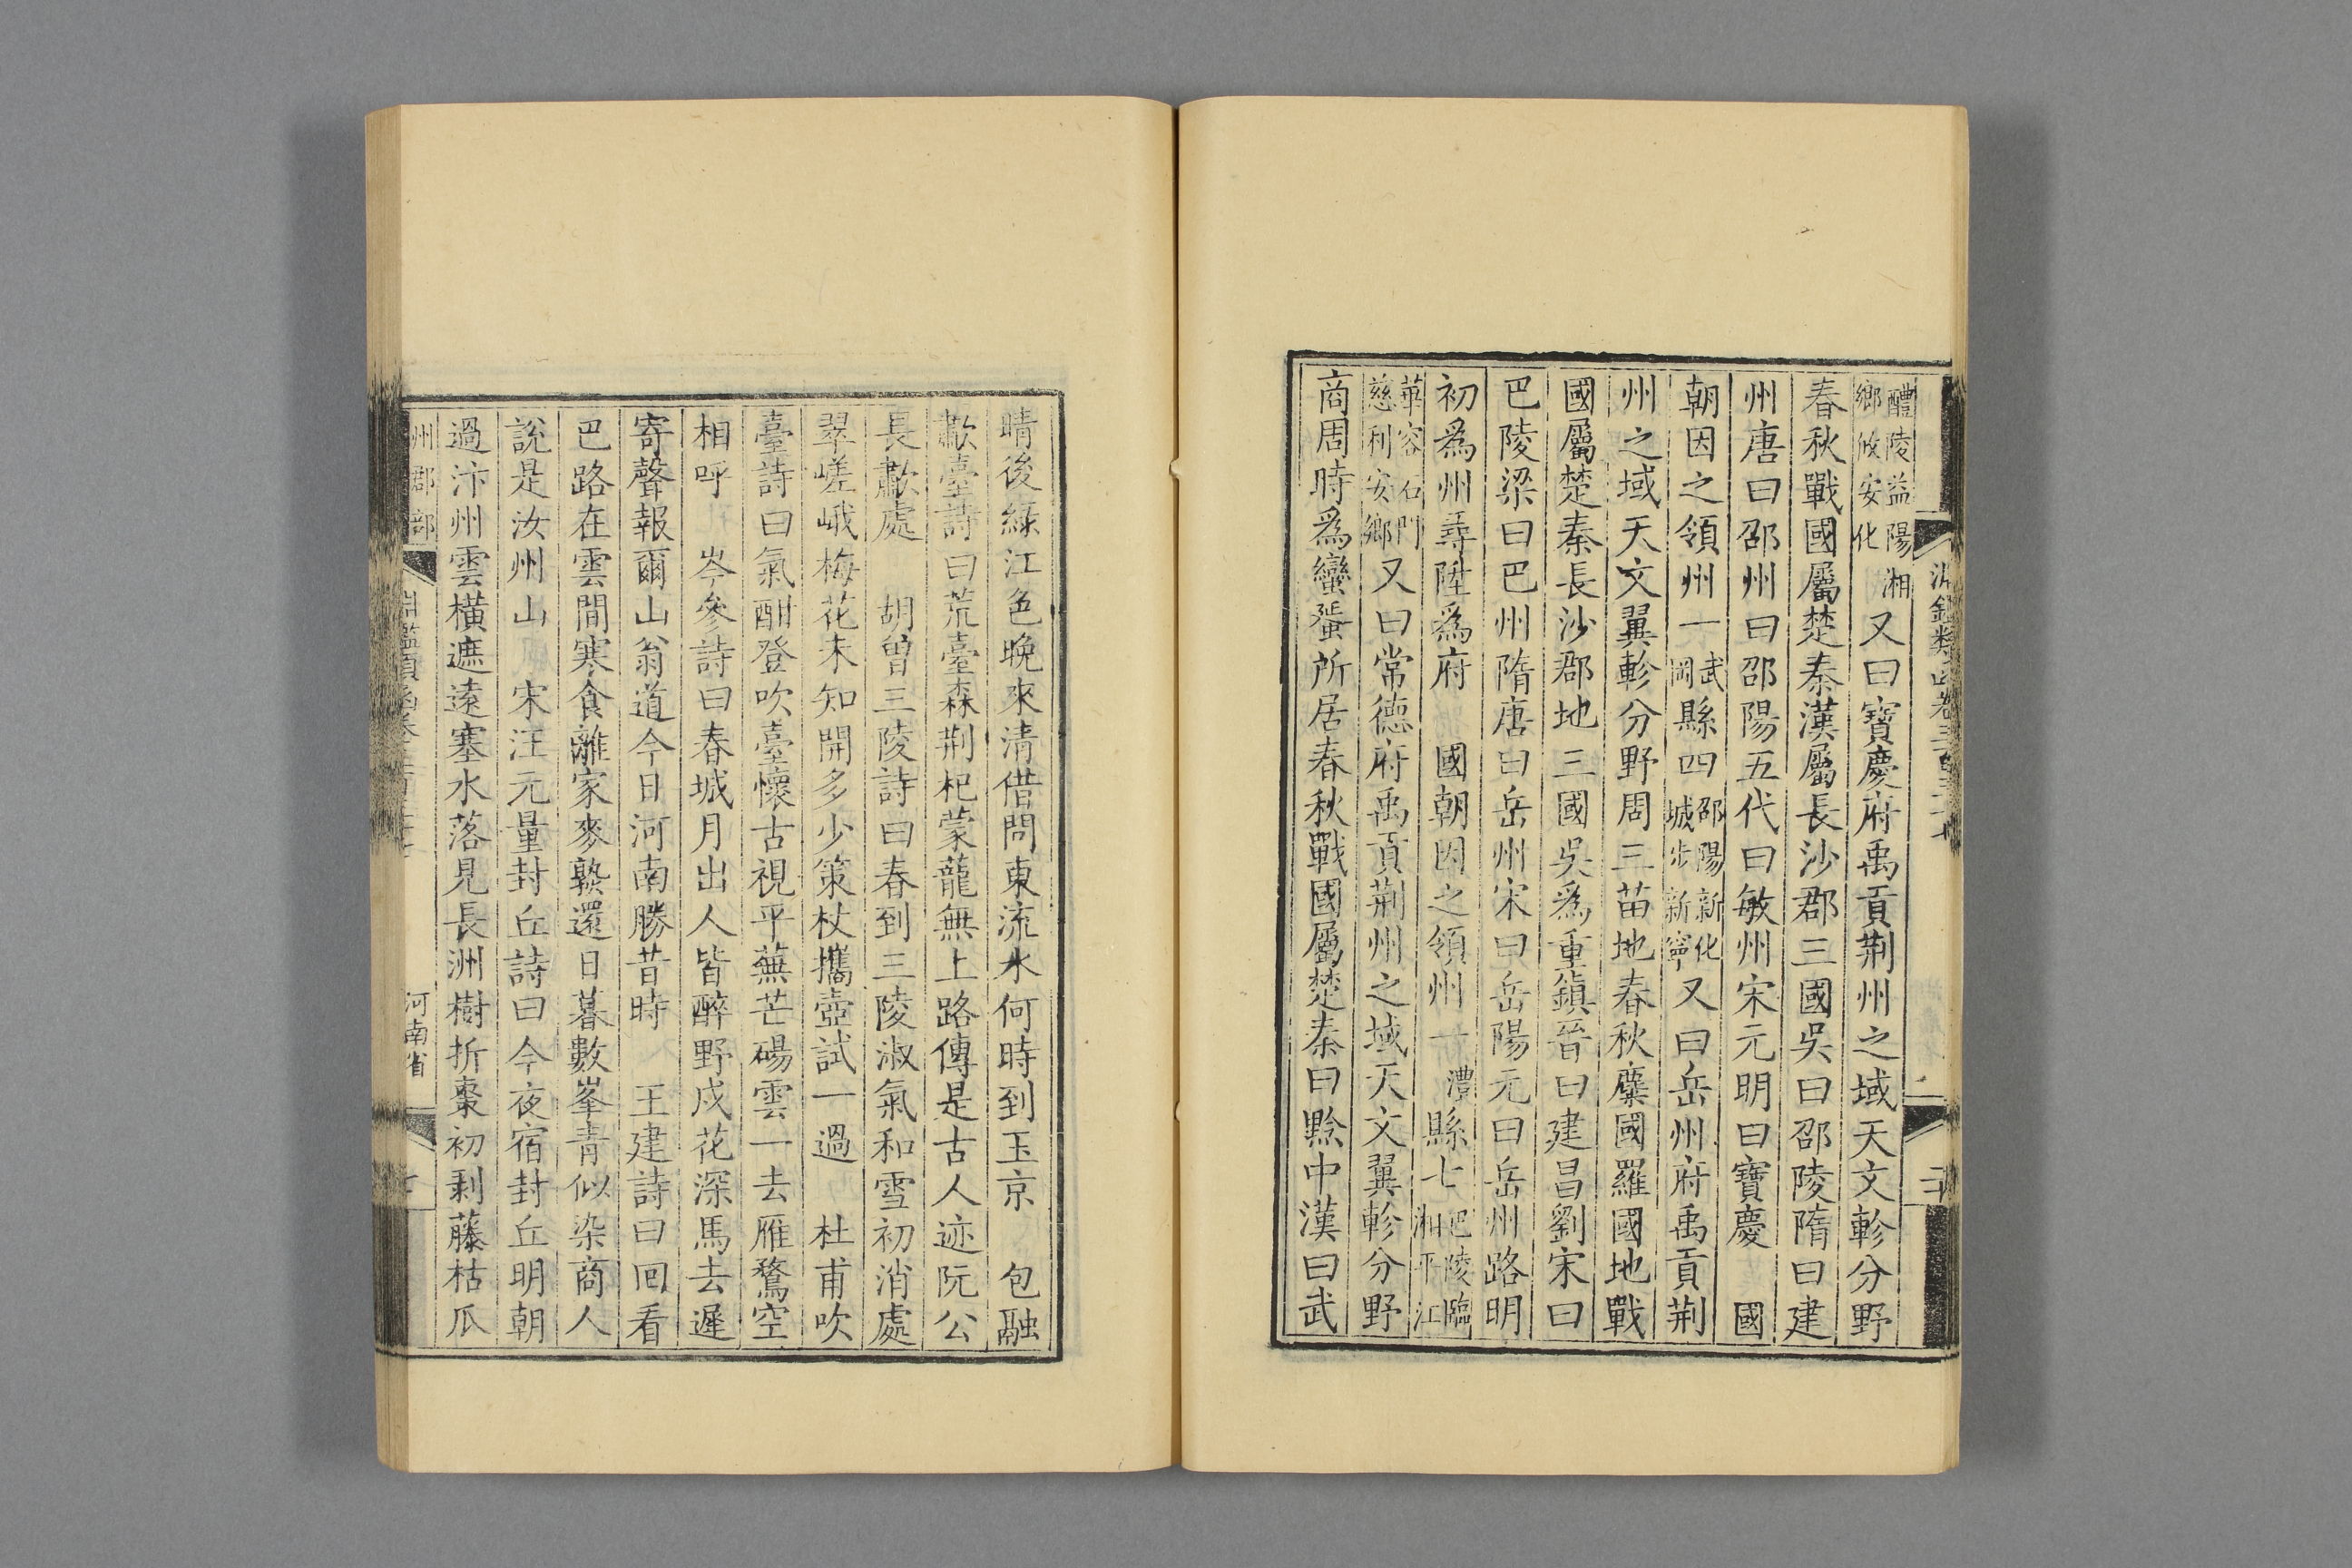 醴陵益陽湘
鄉攸安化
又曰寶慶府禹貢荆州之域天文軫分野
春秋戰國屬楚秦漢屬長沙郡三國吳曰邵陵隋曰建
州唐曰邵州曰邵陽五代曰敏州宋元明曰寶慶 國
朝因之領州一武岡縣四邵陽新化城步新寧又曰岳州府禹貢荆
州之域天文翼軫分野周三苗地春秋麋國羅國地戰
國屬楚秦長沙郡地三國吳爲重鎮晉曰建昌劉宋曰
巴陵梁曰巴州隋唐曰岳州宋曰岳陽元曰岳州路明
初爲州尋陞爲府 國朝因之領州一澧縣七巴陵臨湘平江
華容石門慈利安鄉又曰常德府禹貢荆州之域天文翼軫分野
商周時爲蠻蜑所居春秋戰國屬楚秦曰黔中漢曰武
晴後綠江色晚來清借問東流水何時到玉京 包融
歗臺詩曰荒臺森荆杞蒙蘢無上路傳是古人迹阮公
長歗處 胡曾三陵詩曰春到三陵淑氣和雪初消處
翠嵯峨梅花未知開多少策杖攜壺試一過 杜甫吹
臺詩曰氣酣登吹臺懷古視平蕪芒碭雲一去雁鶩空
相呼 岑參詩曰春城月出人皆醉野戍花深馬去遲
寄聲報爾山翁道今日河南勝昔時 王建詩曰回看
巴路在雲間寒食離家麥熟還日暮數峯青似染商人
說是汝州山 宋汪元量封丘詩曰今夜宿封丘明朝
過汴州雲橫遮遠塞水落見長洲樹折棗初剥藤枯瓜
州郡部
河南省